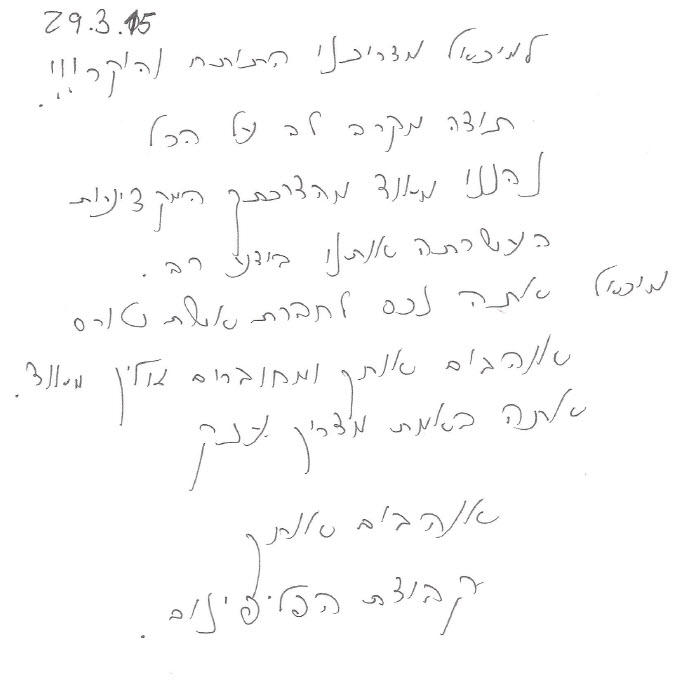 29.3.15
למיכאל מדריכנו התותח והיקר!!!
תודה מקרב לב על הכל
נהננו מאוד מהדרכתך המקצועית
העשרתה אותנו בידע רב.
מיכאל אתה נכס לחברת אשת טורס
אוהבים אותך ומחוברים אליך מאוד.
אתה באמת מדריך ענק
אוהבים אותך
קבוצת הפליפינים.